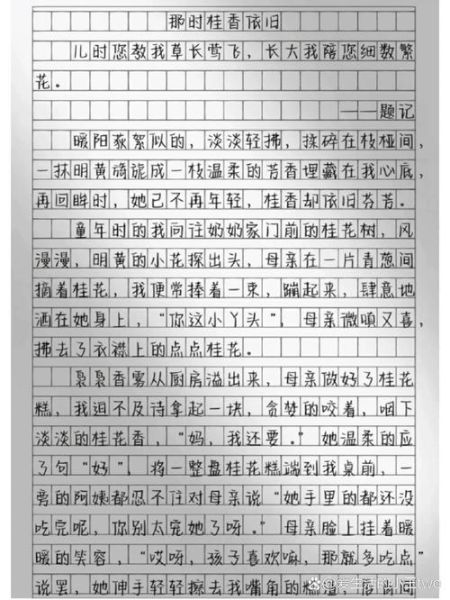 那时桂香依旧
儿时您教我草长莺飞，长大我陪您细数繁
花。
——题记
暖阳荻絮似的，淡淡轻拂，揉碎在枝桠间，
一抹明黄旖旎成一枝温柔的芳香埋藏在我心底，
再回眸时，她已不再年轻，桂香却依旧芬芳。
童年时的我向往奶奶家门前的桂花树，风
漫漫，明黄的小花探出头，母亲在一片青葱间
摘着桂花，我便常捧着一束，蹦起来，肆意地
洒在她身上，“你这小丫头”，母亲微嗔又喜，
拂去了衣襟上的点点桂花。
袅袅香雾从厨房溢出来，母亲做好了桂花
糕，我迫不及待拿起一块，贪婪的咬着，咽下
淡淡的桂花香，“妈，我还要。”她温柔的应
了句“好”，将一整盘桂花糕端到我桌前，一
旁的阿姨都忍不住对母亲说“她手里的都还没
吃完呢，你别太宠她了呀。”母亲脸上挂着暖
暖的笑容，“哎呀，孩子喜欢嘛，那就多吃点”
说罢，她伸手轻轻擦去我嘴角的糕渣，